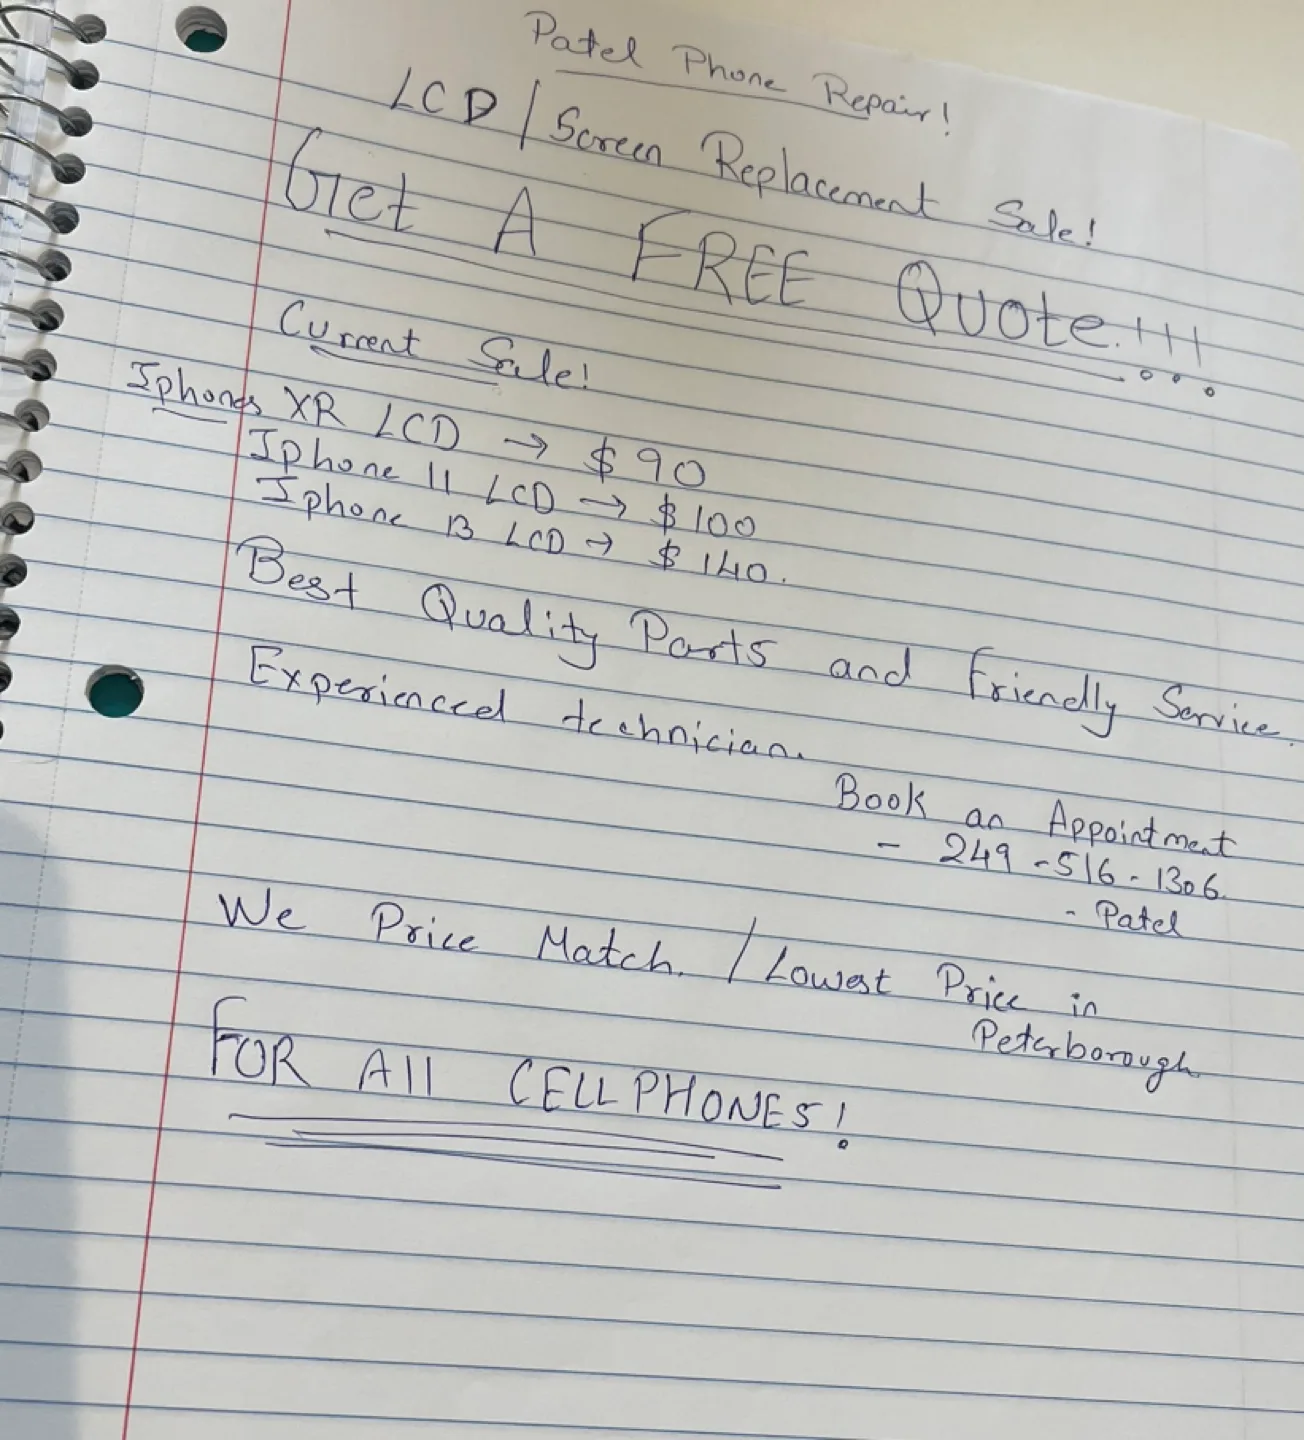 Patel Phone Repair!
LCD / Screen Replacement Sale!
Get A FREE Quote!!!
Current Sale!
Iphones XR LCD → $90
Iphone 11 LCD → $100
Iphone 13 LCD → $140.
Best Quality Parts and Friendly Service.
Experienced technician.
Book an Appointment
- 249-516-1306.
- Patel
We Price Match. / Lowest Price in
Peterborough
FOR All CELLPHONES!